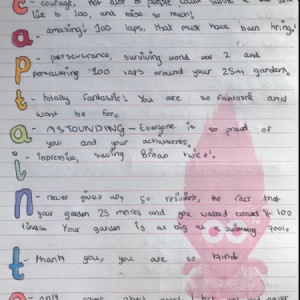 c - courage, not alot of people could survive a
like is 100, and raise so much!
a - amazing! 100 laps, that must have been tiring!
p - perseverance, surviving world war 2 and
persevering 100 laps around your 25m garden.
t - totally fantastic! You are so fantastic and
want be for.
a - ASTOUNDING - Everyone is so proud of
you and your achivments.
i - Inpressive, saving Britain twice!
n - never gives up, so resilient, the fact that
your garden 25 metres and you walked around it 100
times! Your garden is as big as a swimming pool.
t - thank you, you are so kind
o - only